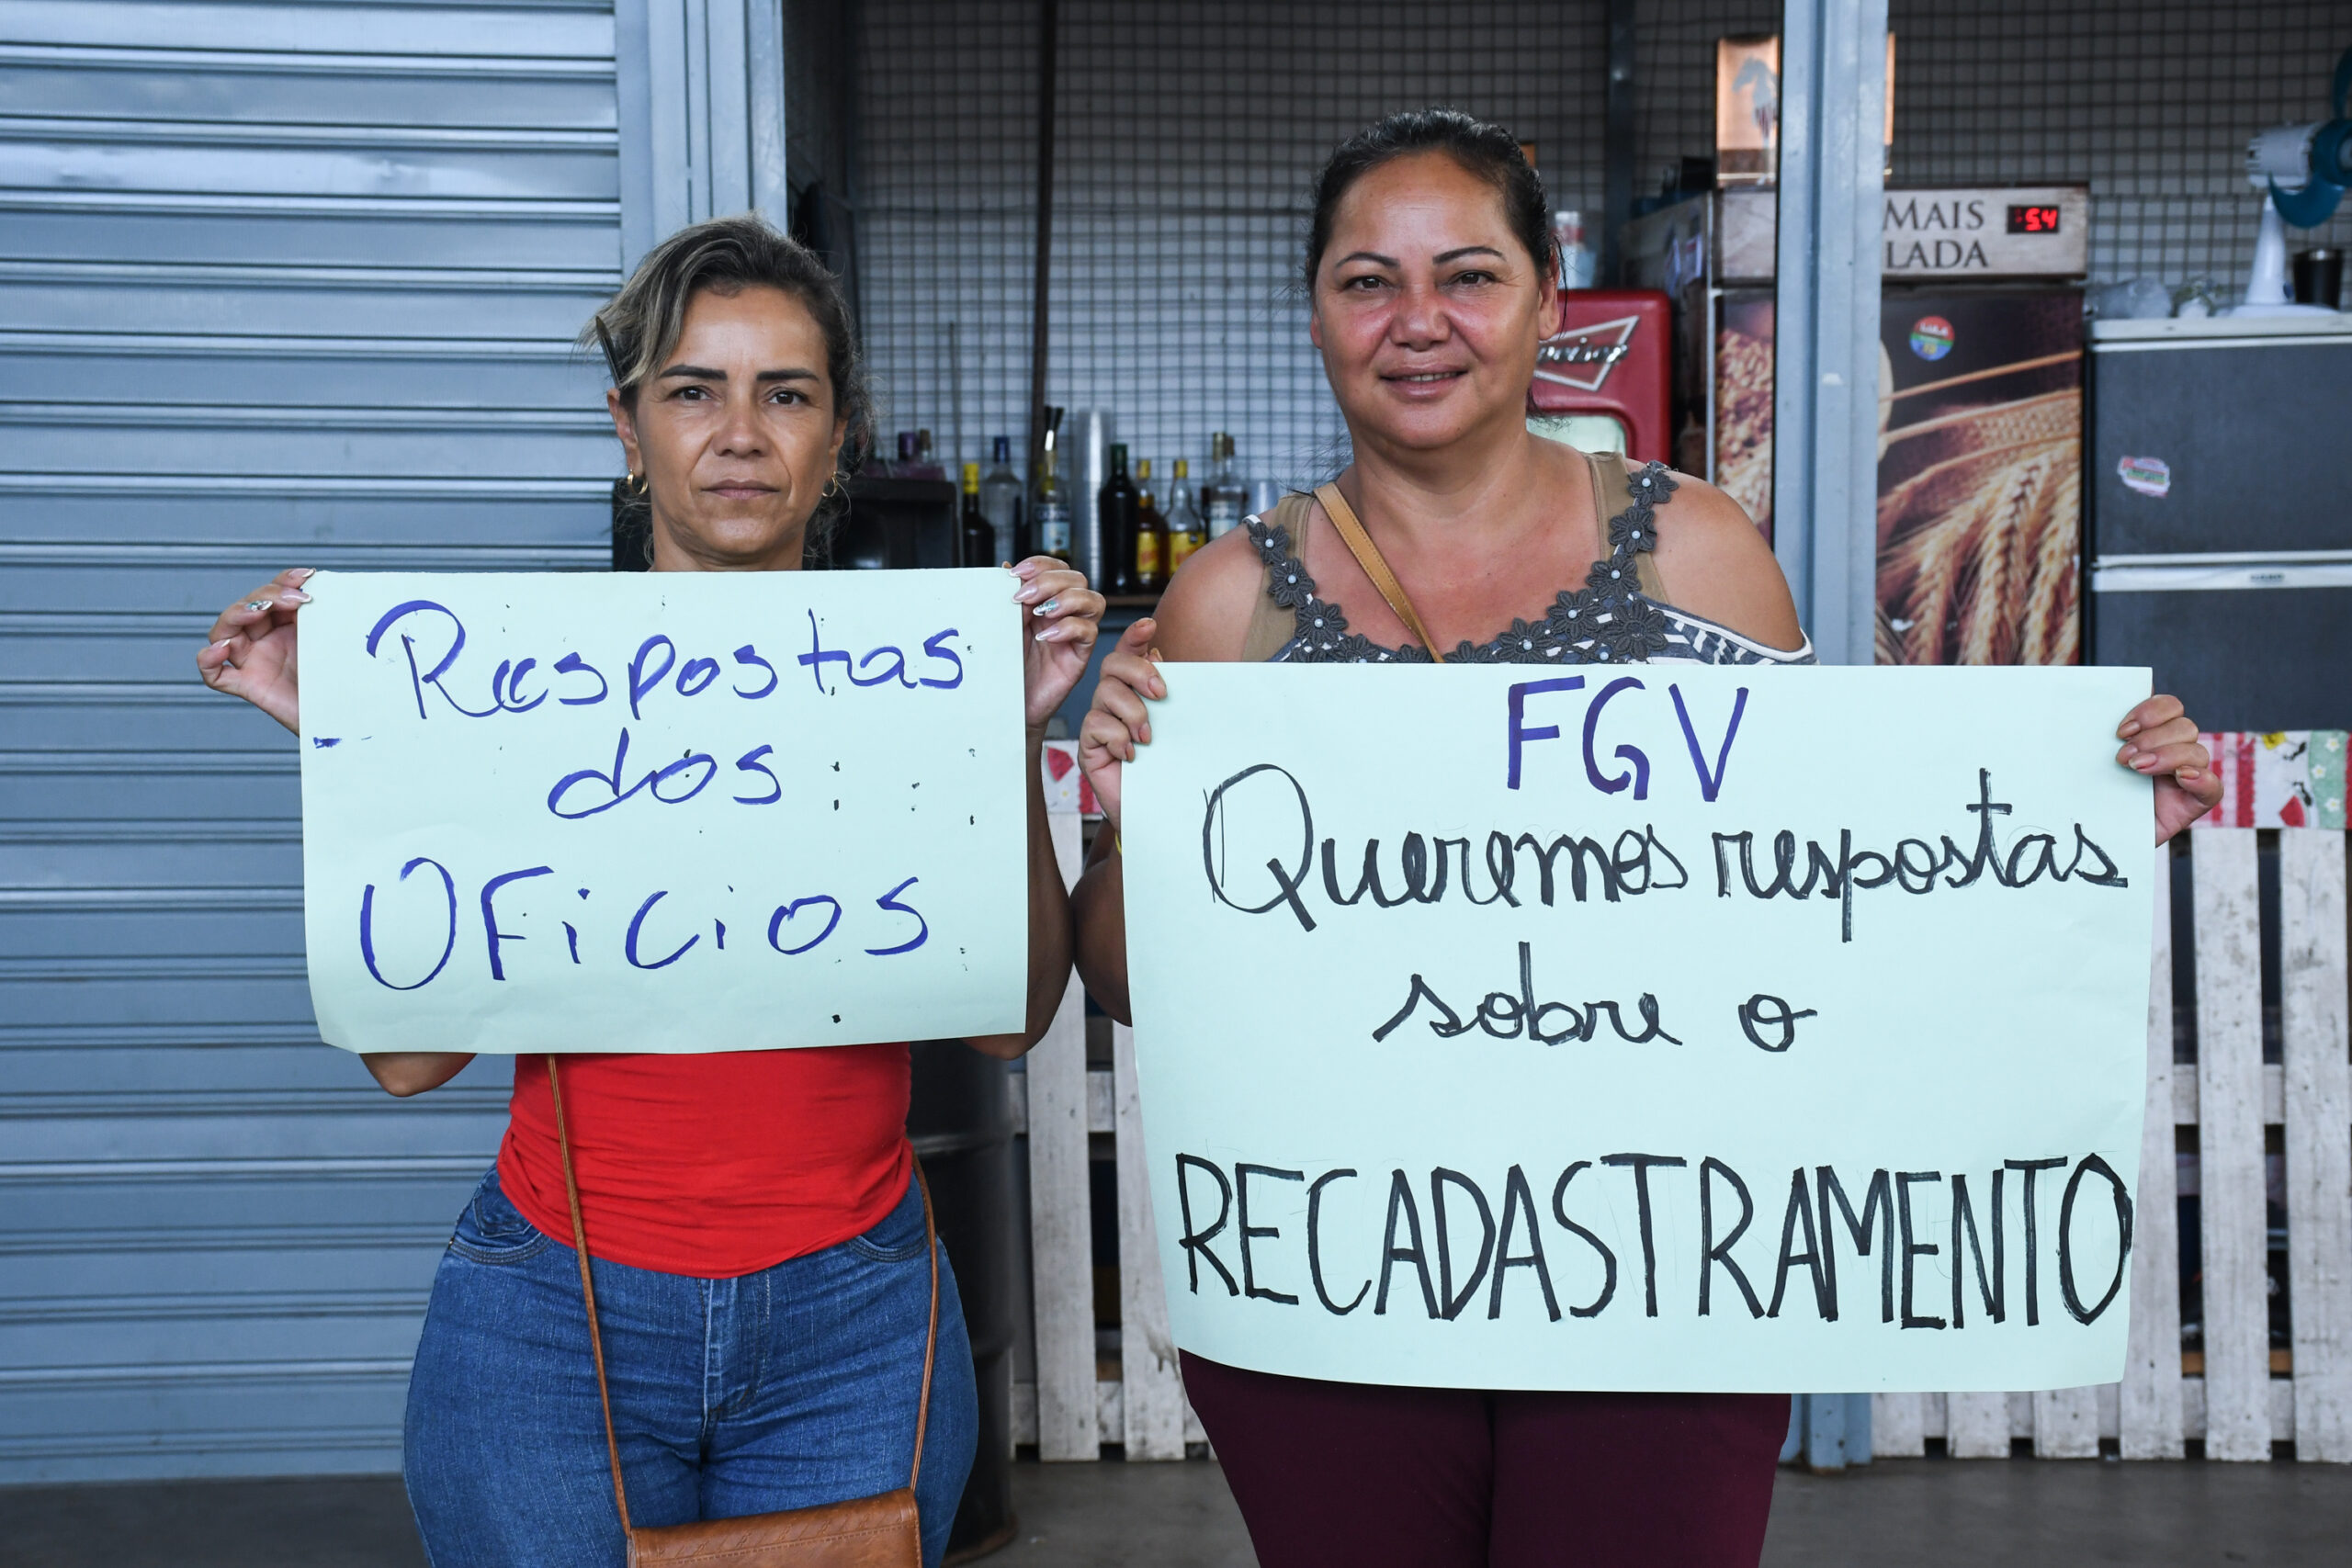 Respostas
dos
OFicios
FGV
Queremos respostas
sobre o
RECADASTRAMENTO
MAIS
LADA
-5.4